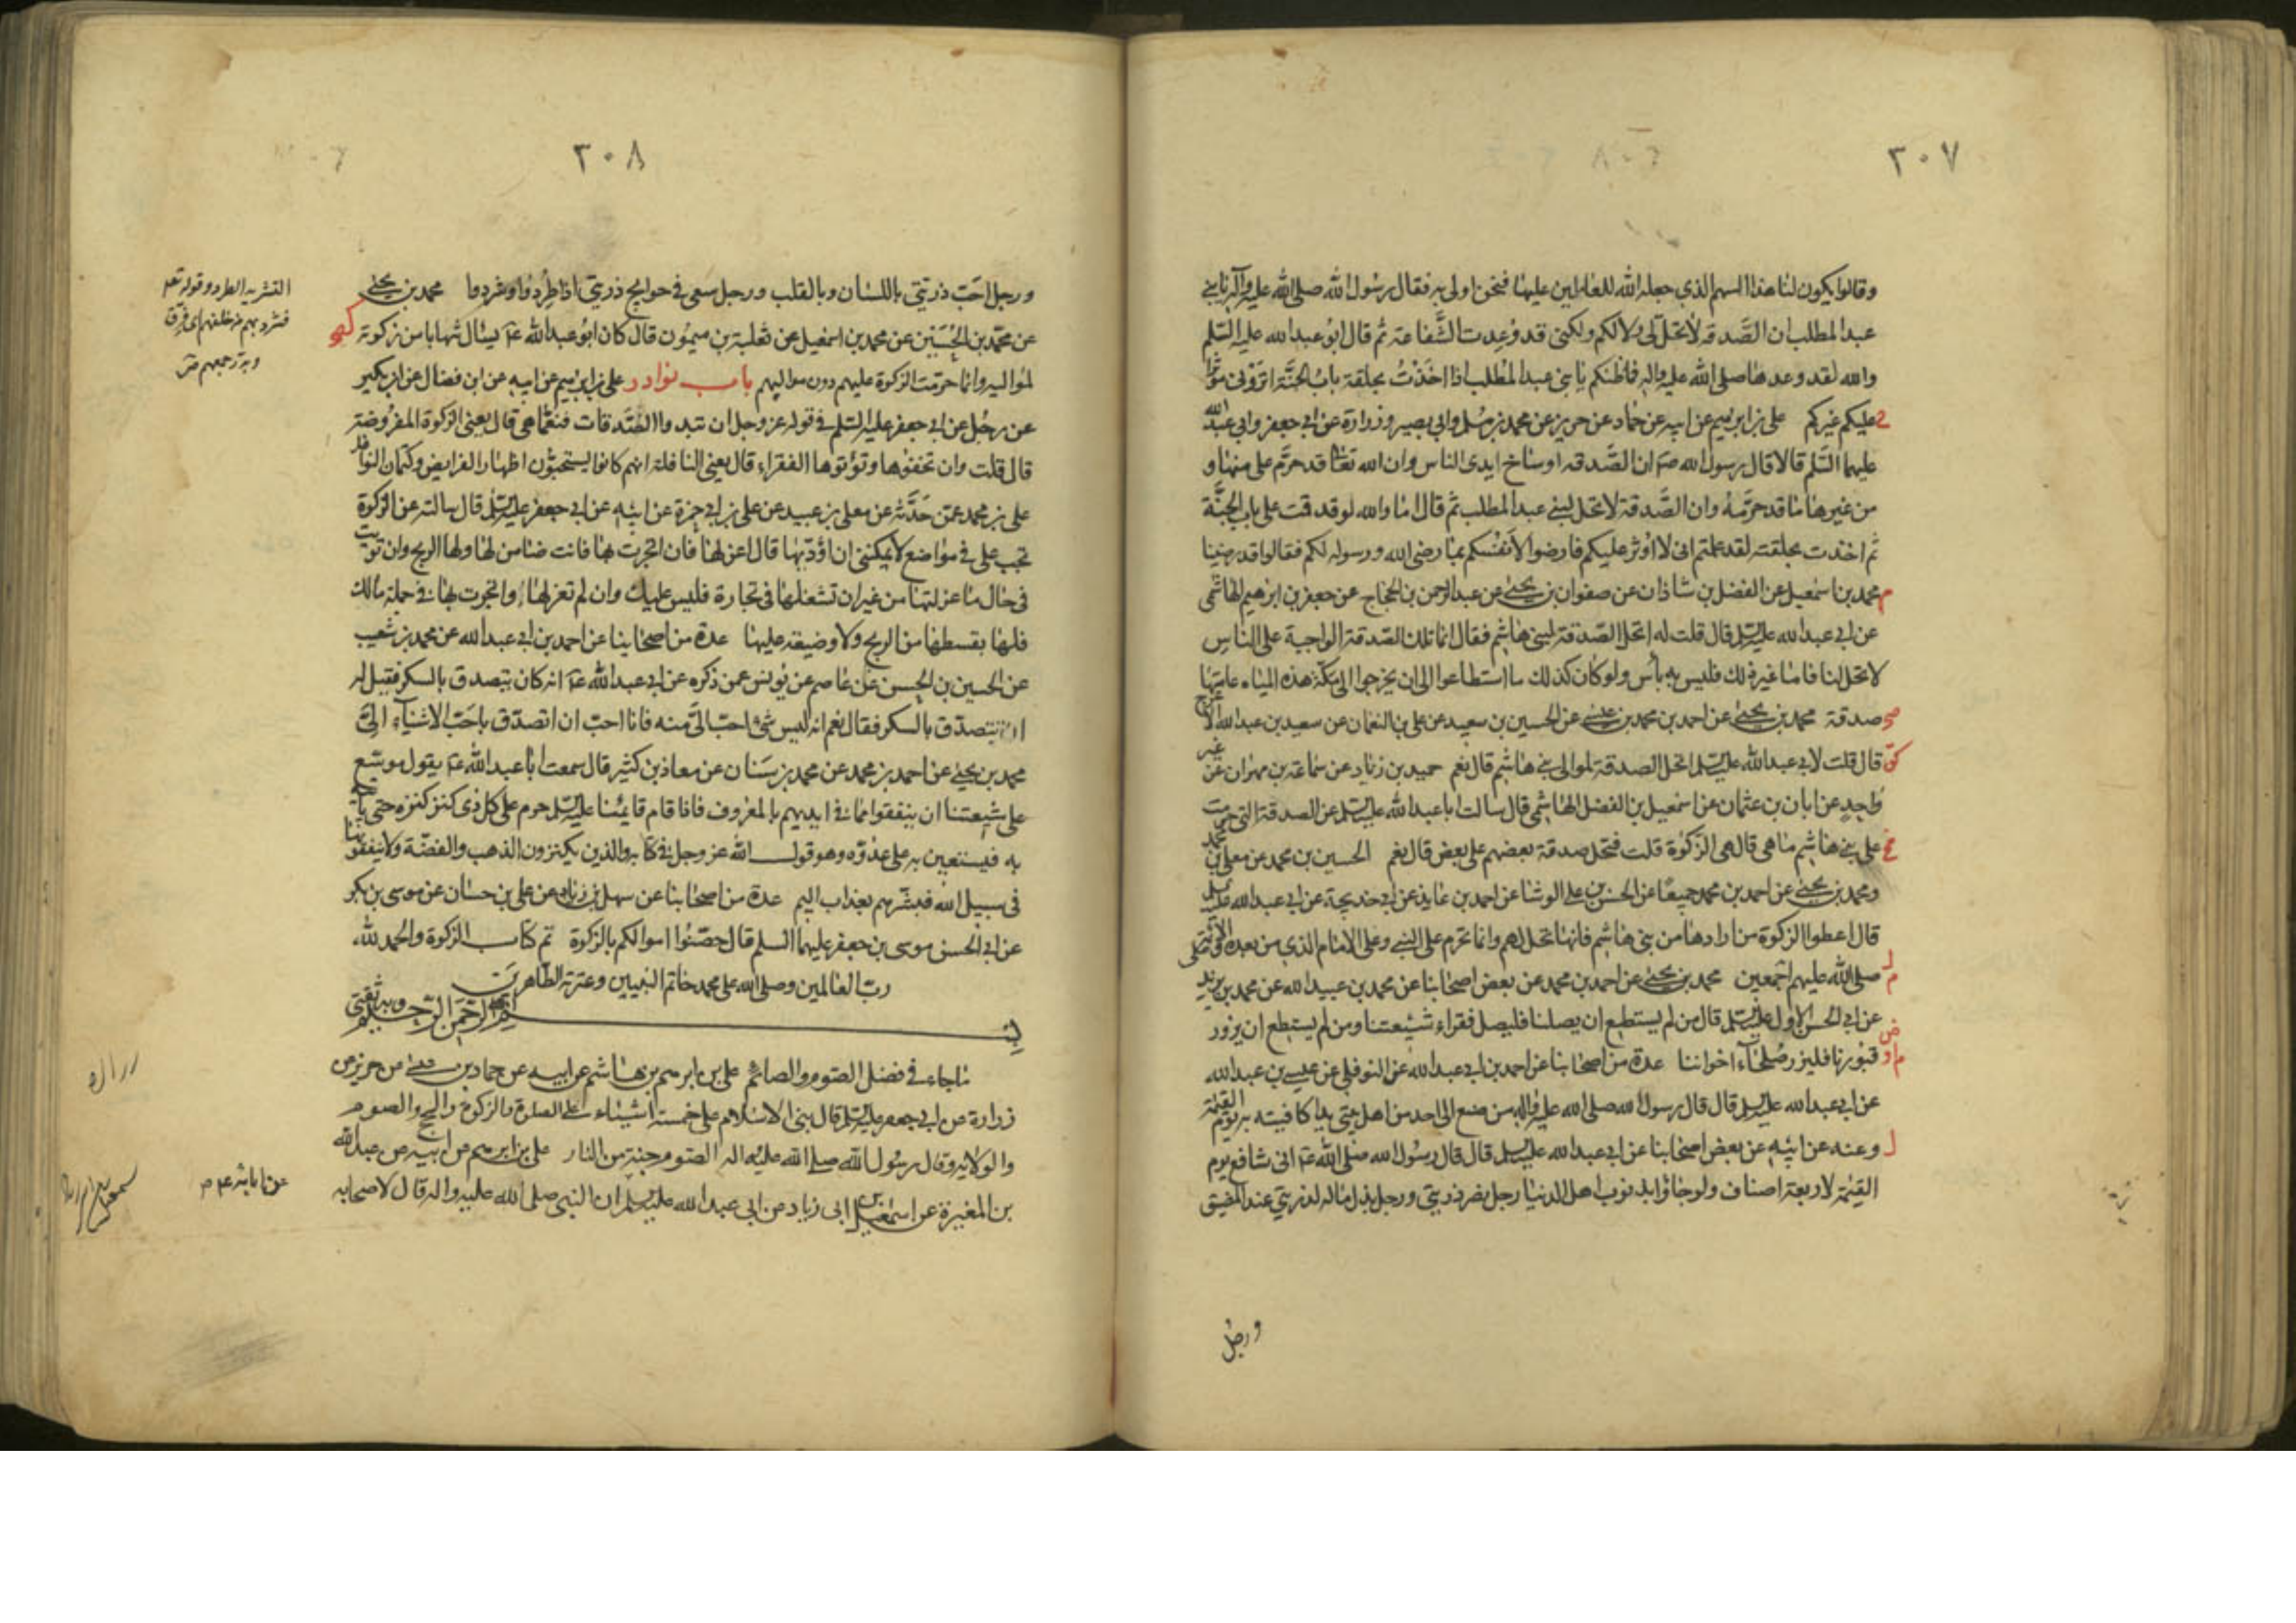 ٣٠٧
وقالوا يكون لنا هذا السهم الذي جعله الله للعاملين عليها فنحن اولى به فقال رسول الله صلى الله عليه وآله يا بني
عبد المطلب ان الصَّدقة لا تحلّ لي ولا لكم ولكني قد وُعِدت الشَّفاعة ثم قال ابو عبد الله عليه السّلم
والله لقد وعدها صلى الله عليه واله فما ظنكم يا بني عبد المطلب اذا اخَذْتُ بحلقة بابُ الجنَّة اترَوْني مؤثرا
عليكم غيركم على بن ابرهيم عن ابيه عن حماد عن حريز عن محمد بن مسلم وابي بصير وزرارة عن ابي جعفر وابي عبد الله
عليهما السَّلم قالا قال رسول الله صم ان الصَّدقه اوساخ ايدى الناس وان الله تعالى قد حرَّم على منها و
من غيرها ما قد حرَّمهُ وان الصَّدقة لا تحل لبني عبد المطلب ثم قال اما والله لو قد قمت على باب الجنَّة
ثم اخذت بحلقته لقد علمتم انى لا اوثر عليكم فارضوا لانفُسكم بما رضى الله ورسوله لكم فقالوا قد رضينا
محمد بن اسمعيل عن الفضل بن شاذان عن صفوان بن يحيى عن عبد الرحمن بن الحجاج عن جعفر بن ابرهيم الهاشمى
عن ابي عبد الله عليه السلم قال قلت له اتحل الصّدقة لبنى هاشم فقال انما تلك الصّدقة الواجبة على الناس
لا تحل لنا فاما غير ذلك فليس به بأس ولو كان كذلك ما استطاعوا الى ان يخرجوا الى مكة هذه المياه عامتها
صدقة محمد بن يحيى عن احمد بن محمد بن عيسى عن الحسين بن سعيد عن على بن النعمان عن سعيد بن عبد الله الاعرج
قال قلت لابي عبد الله عليه السلم اتحل الصدقة لموالى بنى هاشم قال نعم حميد بن زياد عن سماعة بن مهران عن غير
واحدٍ عن ابان بن عثمان عن اسمعيل بن الفضل الهاشمى قال سالت ابا عبد الله عليه السلم عن الصدقة التى حرمت
على بنى هاشم ما هى قال هى الزكوة قلت فتحل صدقة بعضهم على بعض قال نعم الحسين بن محمد عن معلى بن محمد
ومحمد بن يحيى عن احمد بن محمد جميعًا عن الحسن بن على الوشا عن احمد بن عايذ عن ابى خديجة عن ابى عبد الله عليه السلم
قال اعطوا الزكوة من ارادها من بنى هاشم فانها تحل لهم وانما تحرم على النبى وعلى الامام الذى من بعده
صلى الله عليهم اجمعين محمد بن يحيى عن احمد بن محمد عن بعض اصحابنا عن محمد بن عبيد الله عن محمد بن يزيد
عن ابى الحسن الاول عليه السلم قال من لم يستطع ان يصلنا فليصل فقراء شيعتنا ومن لم يستطع ان يزور
قبورنا فليزر صُلحاء اخواننا عدة من اصحابنا عن احمد بن ابى عبد الله عن النوفلى عن عيسى بن عبد الله
عن ابى عبد الله عليه السلم قال قال رسول الله صلى الله عليه واله من صنع الى احد من اهل بيتى يدا كافيته به يوم القيمة
وعنه عن ابيه عن بعض اصحابنا عن ابى عبد الله عليه السلم قال قال رسول الله صلى الله عم انى شافع يوم
القيمة لاربعة اصناف ولو جاؤا بذنوب اهل الدنيا رجل نصر ذريتى ورجل بذل ماله لذريتى عند المضيق
ورجل
٣٠٨
ورجل احبّ ذريّتى باللسان وبالقلب ورجل سعى فى حوايج ذريتى اذا طُرِدوا او شردوا محمد بن يحيى
عن محمّد بن الحُسَيْن عن محمد بن اسمعيل عن ثعلبة بن ميمُون قال كان ابو عبد الله عم يسئال شهابا من زكوته
لمواليه وانما حرّمت الزكوة عليهم دون مواليهم باب نوادر على بن ابرهيم عن ابيه عن ابن فضال عن ابن بكير
عن رجُل عن ابى جعفر عليه السّلم فى قوله عز وجل ان تبدوا الصَّدقات فنعمّا هى قال يعنى الزكوة المفروضة
قال قلت وان تخفوها وتؤتوها الفقراء قال يعنى النافلة انهم كانوا يستحبّون اظهار الفرايض وكتمان النوافل
على بن محمد عمّن حَدَّثه عن معلى بن عبيد عن على بن ابى حمزة عن ابيه عن ابى جعفر عليه السلم قال سالته عن الزكوة
تجب على فى مواضع لا يمكننى ان اؤدّيها قال اعزلها فان اتجرت بها فانت ضامن لها ولها الربح وان تويت
فى حال ما عزلتها من غير ان تشغلها فى تجارة فليس عليك وان لم تعزلها واتجرت بها فى جملة مالك
فلها بقسطها من الربح ولا وضيعة عليها عدة من اصحابنا عن احمد بن ابى عبد الله عن محمد بن شعيب
عن الحسين بن الحسن عن عاصم عن يونس عمن ذكره عن ابى عبد الله عم انه كان يتصدق بالسكر فقيل له
اتتصدّق بالسكر فقال نعم انه ليس شئ احبّ الىّ منه فانا احبّ ان اتصدّق باحَبّ الاشياء الىَّ
محمد بن يحيى عن احمد بن محمد عن محمد بن سنان عن معاذ بن كثير قال سمعت ابا عبد الله عم يقول موسّع
على شيعتنا ان ينفقوا مما فى ايديهم بالمعروف فاذا قام قايمُنا عليه السلم حرم على كل ذى كنز كنزه حتى ياتيه
به فيستعين به على عدوّه وهو قول الله عز وجل فى كتابه والذين يكنزون الذهب والفضّة ولا ينفقونها
فى سبيل الله فبشّرهم بعذاب اليم عدة من اصحابنا عن سهل بن زياد عن على بن حسان عن موسى بن بكر
عن ابى الحسن موسى بن جعفر عليهما السلم قال حصّنُوا اموالكم بالزكوة تم كتاب الزكوة والحمد لله
ربّ العالمين وصلى الله على محمد خاتم النبيين وعترته الطّاهرين
بسم الله الرحمن الرحيم وبه ثقتى
ما جاء فى فضل الصّوم والصائم على بن ابرهيم بن هاشم عن ابيه عن حماد بن عيسى عن حريز عن
زرارة عن ابى جعفر عليه السلم قال بنى الاسلام على خمسة اشياء على الصلوة والزكوة والحج والصوم
والولاية وقال رسول الله صلى الله عليه واله الصّوم جنة من النار على بن ابرهيم عن ابيه عن عبد الله
بن المغيرة عن اسمعيل بن ابى زياد عن ابى عبد الله عليه السلم ان النبى صلى الله عليه واله قال لاصحابه
التشريد الطرد وقوله تعالى
فشرد بهم من خلفهم اى فرق
عن ابائه عم